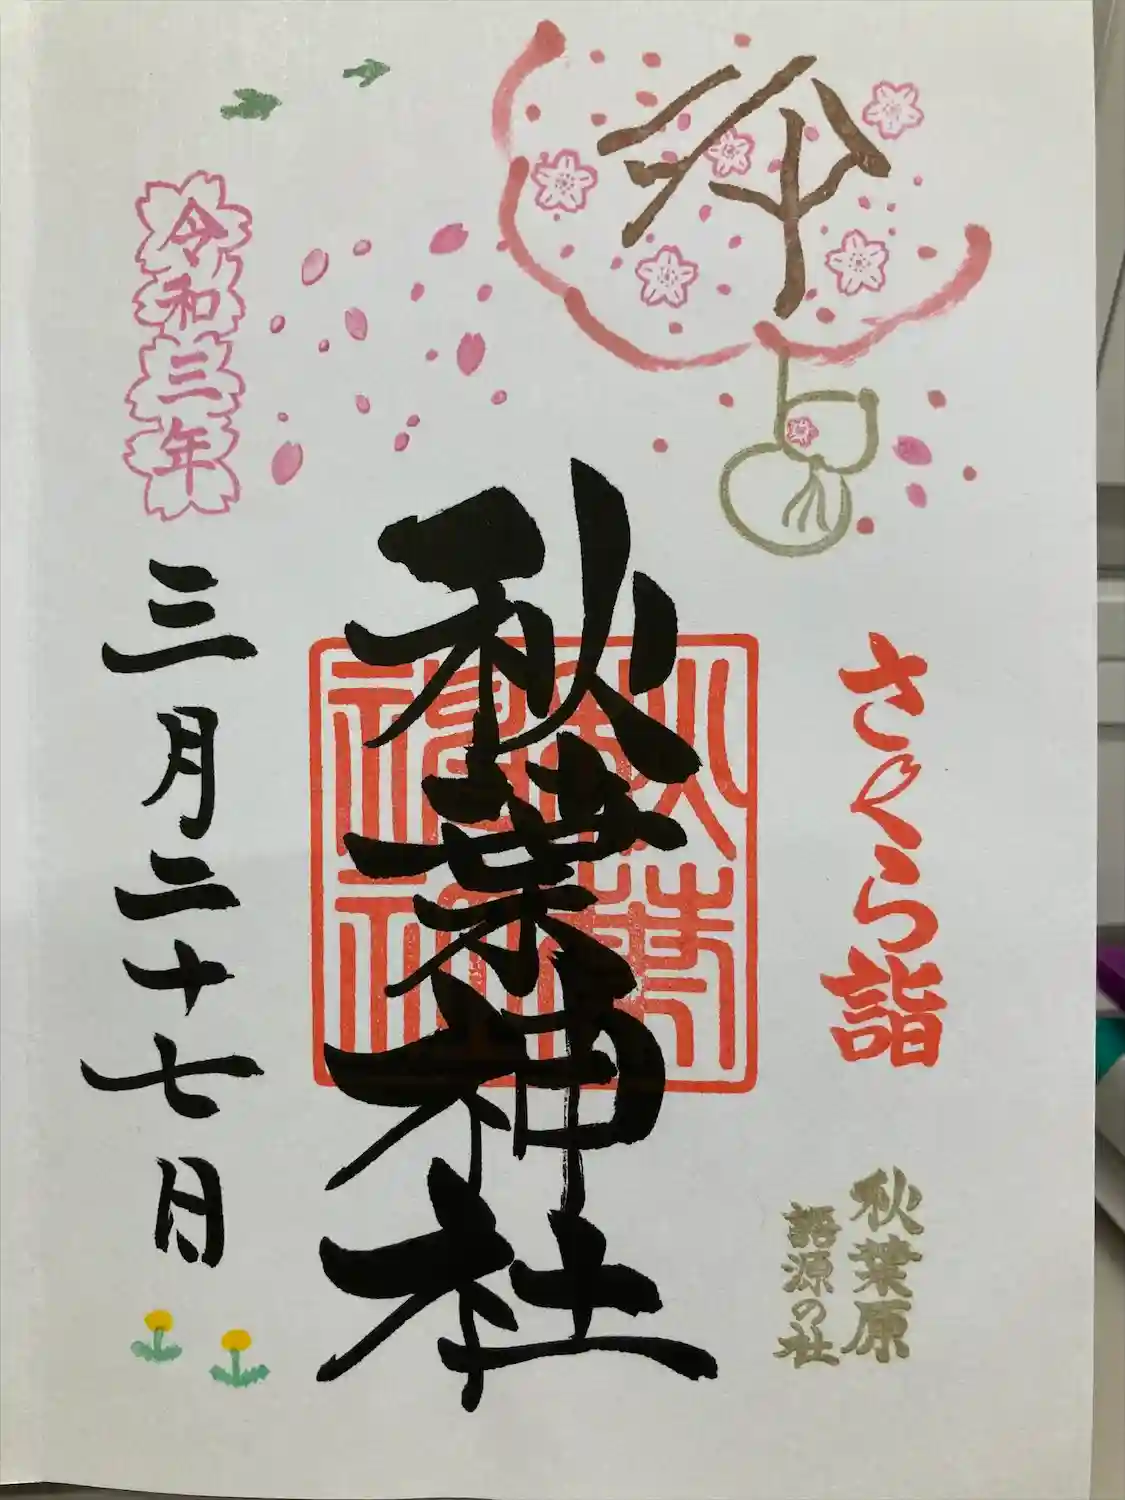 奉拝
さくら詣
秋葉原
語源の社
秋葉神社
令和三年
三月二十七日